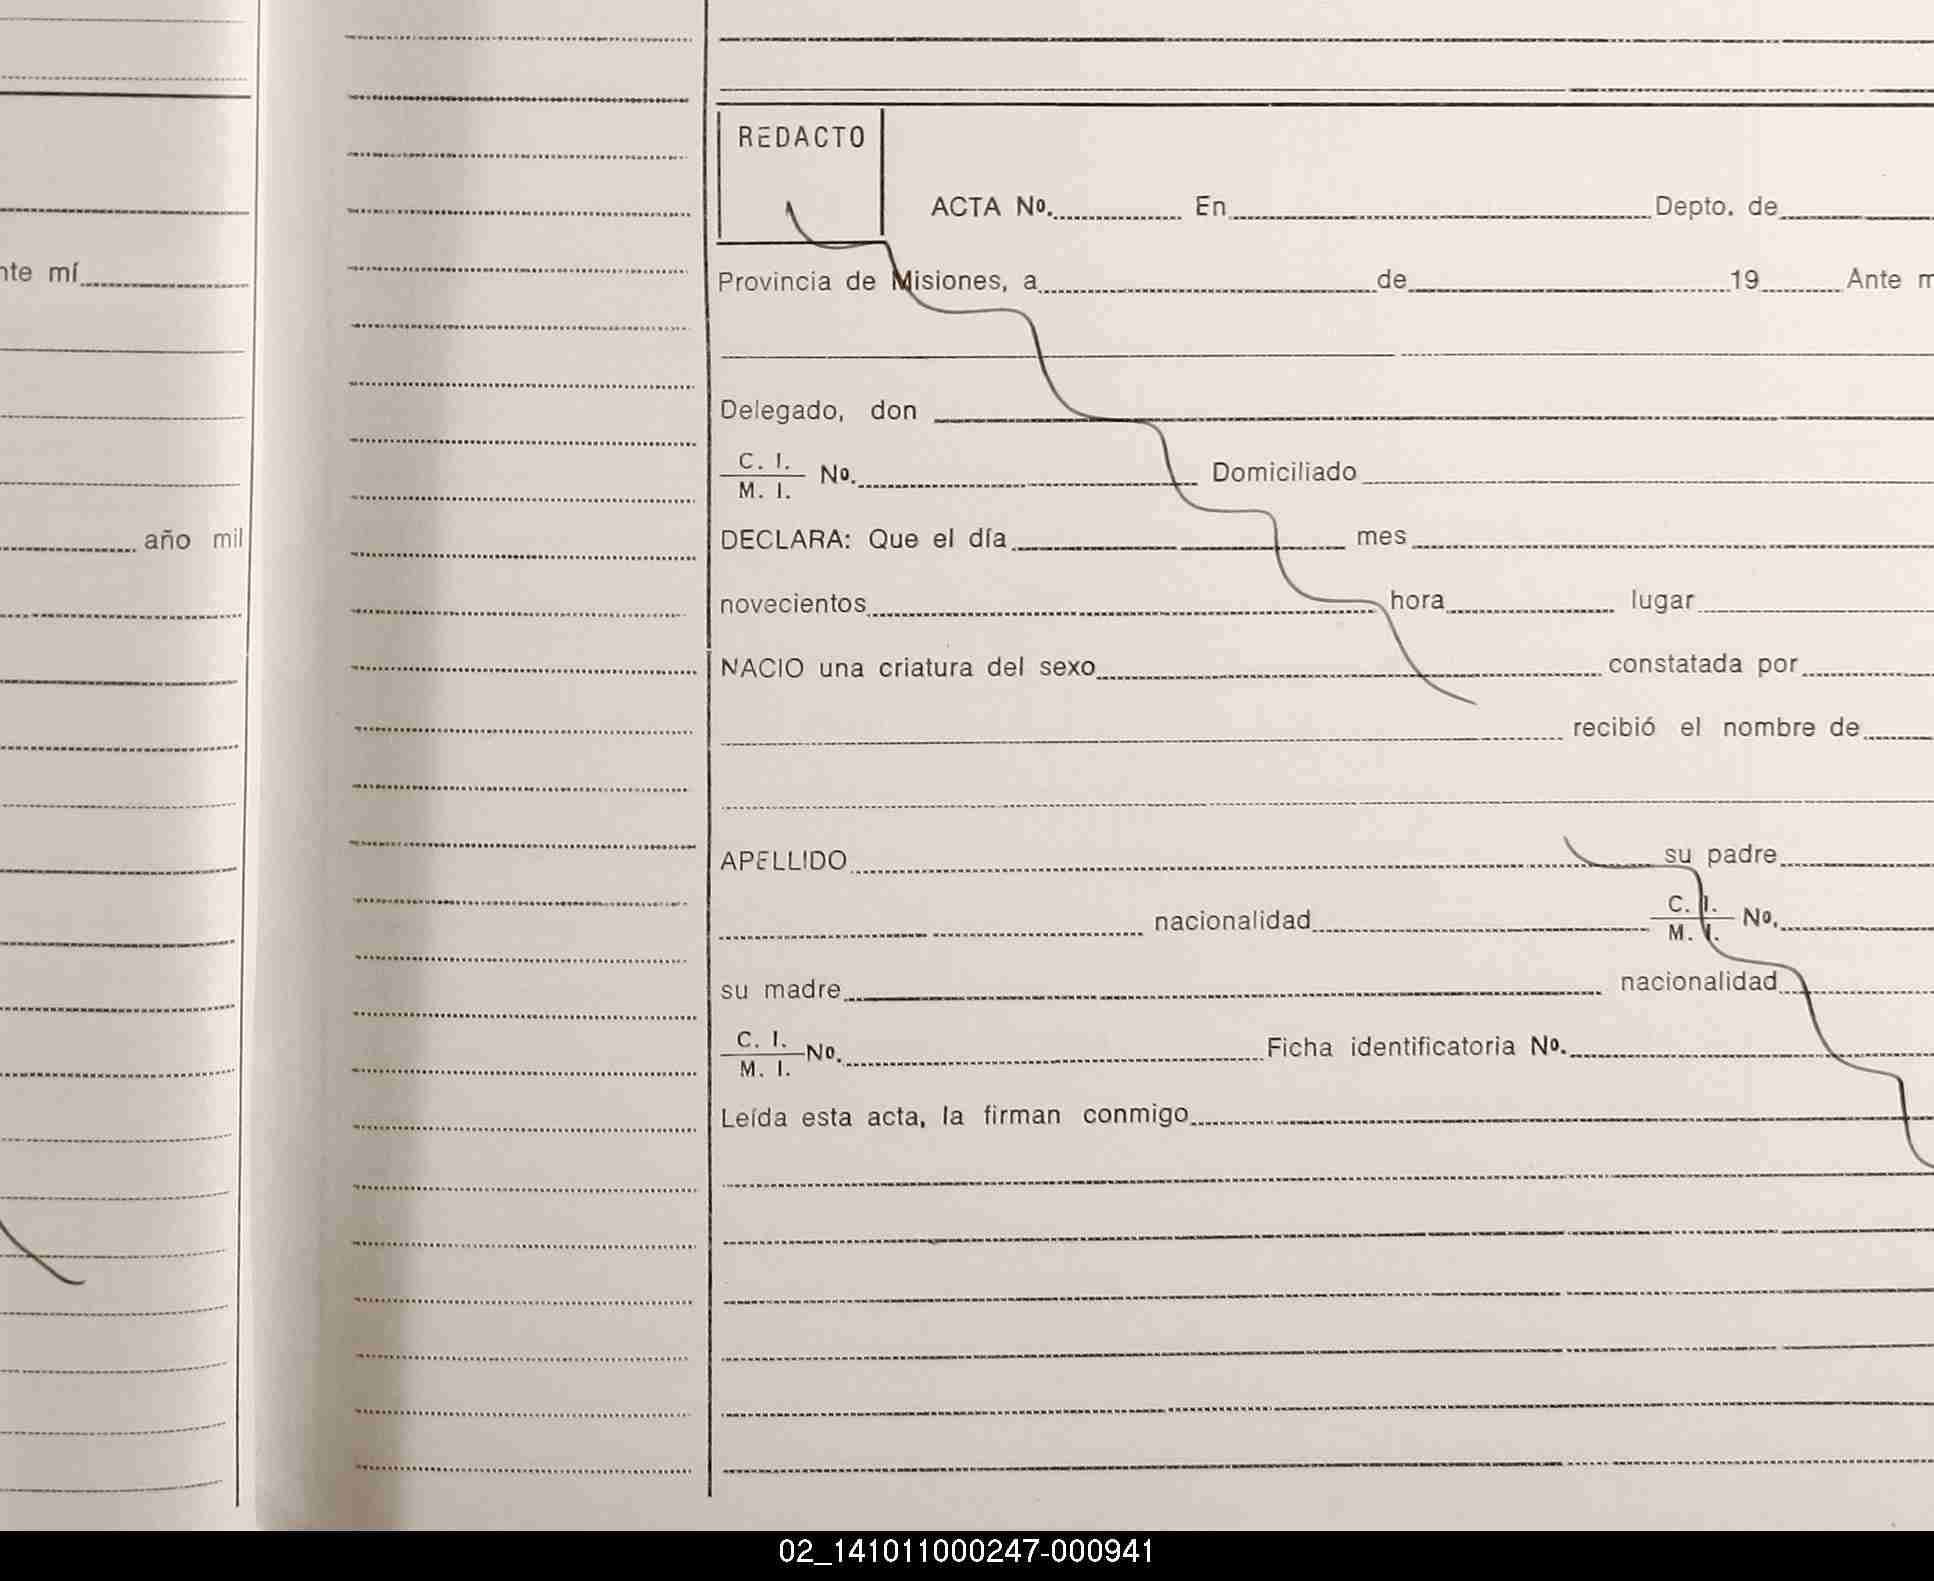 nte mí
año mil
REDACTO
ACTA Nº. En Depto. de
Provincia de Misiones, a de 19 Ante m
Delegado, don
C. I.
M. I. Nº. Domiciliado
DECLARA: Que el día mes
novecientos hora lugar
NACIO una criatura del sexo constatada por
recibió el nombre de
APELLIDO su padre
nacionalidad C. I.
M. I. Nº.
su madre nacionalidad
C. I.
M. I. Nº. Ficha identificatoria Nº.
Leída esta acta, la firman conmigo
02_141011000247-000941